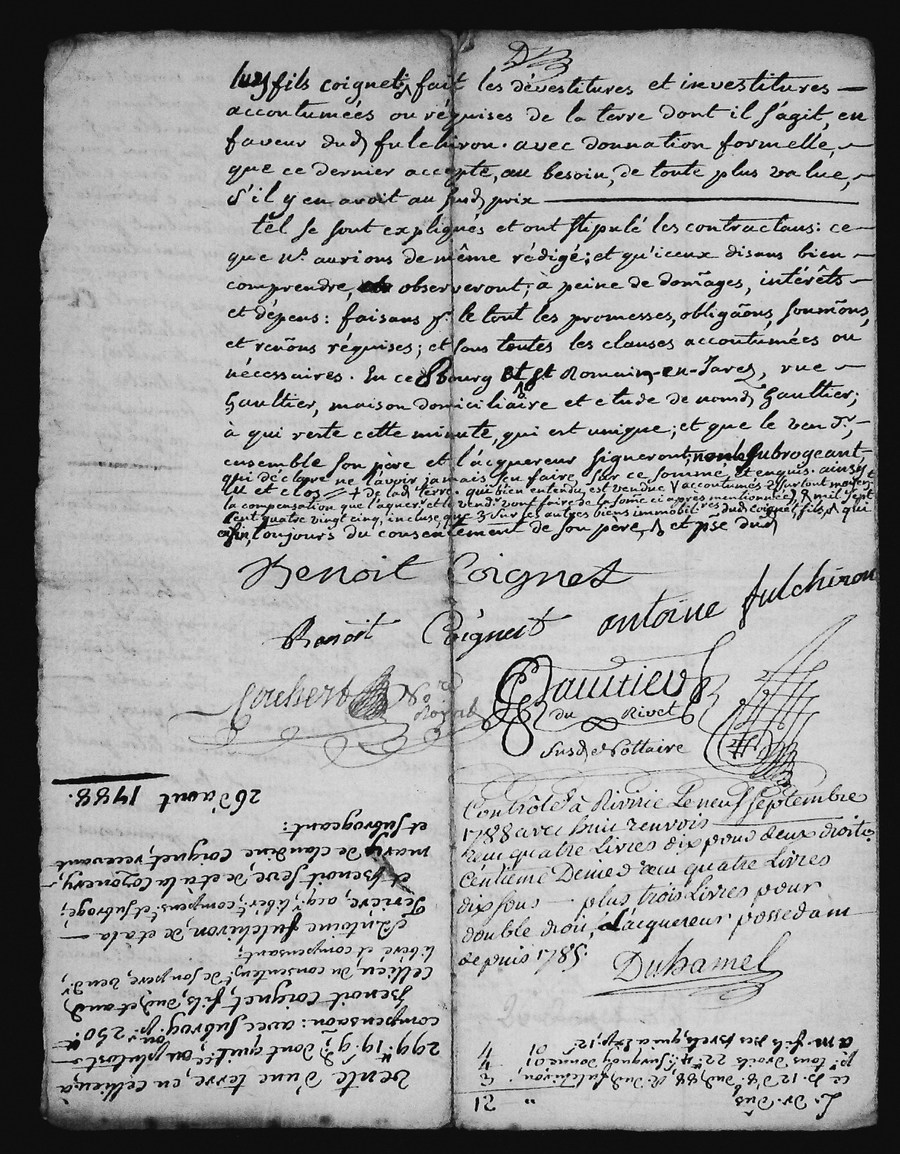 fils coignet fait les dévestitures et investitures
accoutumées ou réquises de la terre dont il s'agit, en
faveur dud fulchiron. avec donnation formelle,
que ce dernier accepte, au besoin, de toute plus value,
s'il y en avoit au susd prix
tel se sont expliqués et ont stipulé les contractans: ce
que ns. aurions de même rédigé; et qu'iceux disans bien
comprendre, observeront, à peine de dom̃ages, intérêts
et dépens: faisans pr. le tout les promesses, obligãons, soumõns,
et renõns réquises; et sous toutes les clauses accoutumées ou
nécessaires. En ce Bourg st Romain-en-Jarez, rue
Gaultier, maison domiciliaire et etude de nomd Gaultier;
à qui reste cette minute, qui est unique; et que le vendr,
ensemble son père et l'acquereur signeront; subrogeant
qui déclare ne l'avoir jamais sçu faire, sur ce sommé, et enquis. ainsy
lu et clos = + de lad terre. qui bien entendu est vendue accoutumés surtout moyent
la compensation que l'aquerr. et le vendr. vont faire de la some ci après mentionnée mil sept
cent quatre vingt cinq, incluse, que sur les autres biens immobilres dud coignet, fils, qui
toujours du consentement de son pere, et pse dud
Benoit Coignet
Benoit Coigneit antoine fulchiron
Joubert No Royal
Gaultier
du Rivet
susd Nottaire
Contrôlé à Rivirie Le neuf septembre
1788 avec huit renvois
reçu quatre Livres dix sous deux droits
Centieme Denier reçu quatre Livres
dix sous plus trois Livres pour
double droit, l'acquereur possedant
depuis 1785.
Duhamel
26 d'aout 1788.
Vente d'une terre, en cellieu, a
299lt 19s 9d dont quittce ou plutost
compensaon: avec subrogon. pr. 250lt
Benoit Coignet fils, dud et aud
cellieu, du consentemt de son pere, vendr
libéré et compensant;
A Antoine fulchiron, de et à la
acqr. libér. compenst et subrogé;
et Benoit Seve, de et à la Cozonery,
mary de claudine Coignet, recevant
et subrogeant:
21